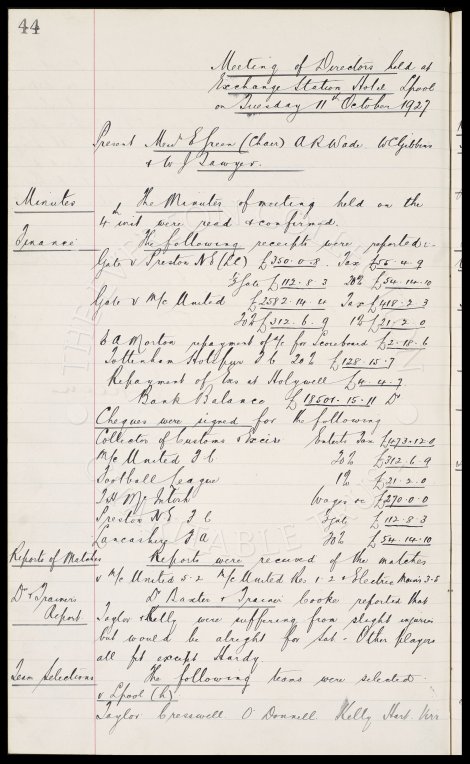 44
Meeting of Directors held at
Exchange Station Hotel Lpool
on Tuesday 11th October 1927
Present Messrs E Green (Chair) A R Wade W C Gibbins
& W J Sawyer.
Minutes The Minutes of meeting held on the
4th inst were read & confirmed.
Finance The following receipts were reported:-
Gate v Preston N E (LC) £350.0.8. Tax £56.4.9
⅓ Gate £112.8.3 20% £54.14.10
Gate v M/c United £2582.14.4 Tax £418.2.3
20% £312.6.9 1% £21.2.0
E A Morton repayment of a/c for Scoreboard £2.18.6
Tottenham Hotspur F C 20% £128.15.7
Repayment of tax at Holywell £4.4.7
Bank Balance £18501.15.11 Dr
Cheques were signed for the following
Collector of Customs & Excise Entert Tax £473.12.0
M/c United F C 20% £312.6.9
Football League 1% £21.2.0
T H McIntosh Wages &c £270.0.0
Preston N E F C ⅓ gate £112.8.3
Lancashire F A 20% £54.14.10
Reports of Matches Reports were received of the matches
v M/c United 5-2 M/c United Res 1-2 & Electric 3-5
Dr & Trainers Report Dr Baxter & Trainer Cooke reported that
Taylor & Kelly were suffering from slight injuries
but would be alright for Sat - Other players
all fit except Hardy
Team Selections The following teams were selected
v Lpool (h)
Taylor Cresswell O'Donnell Kelly Hart Virr